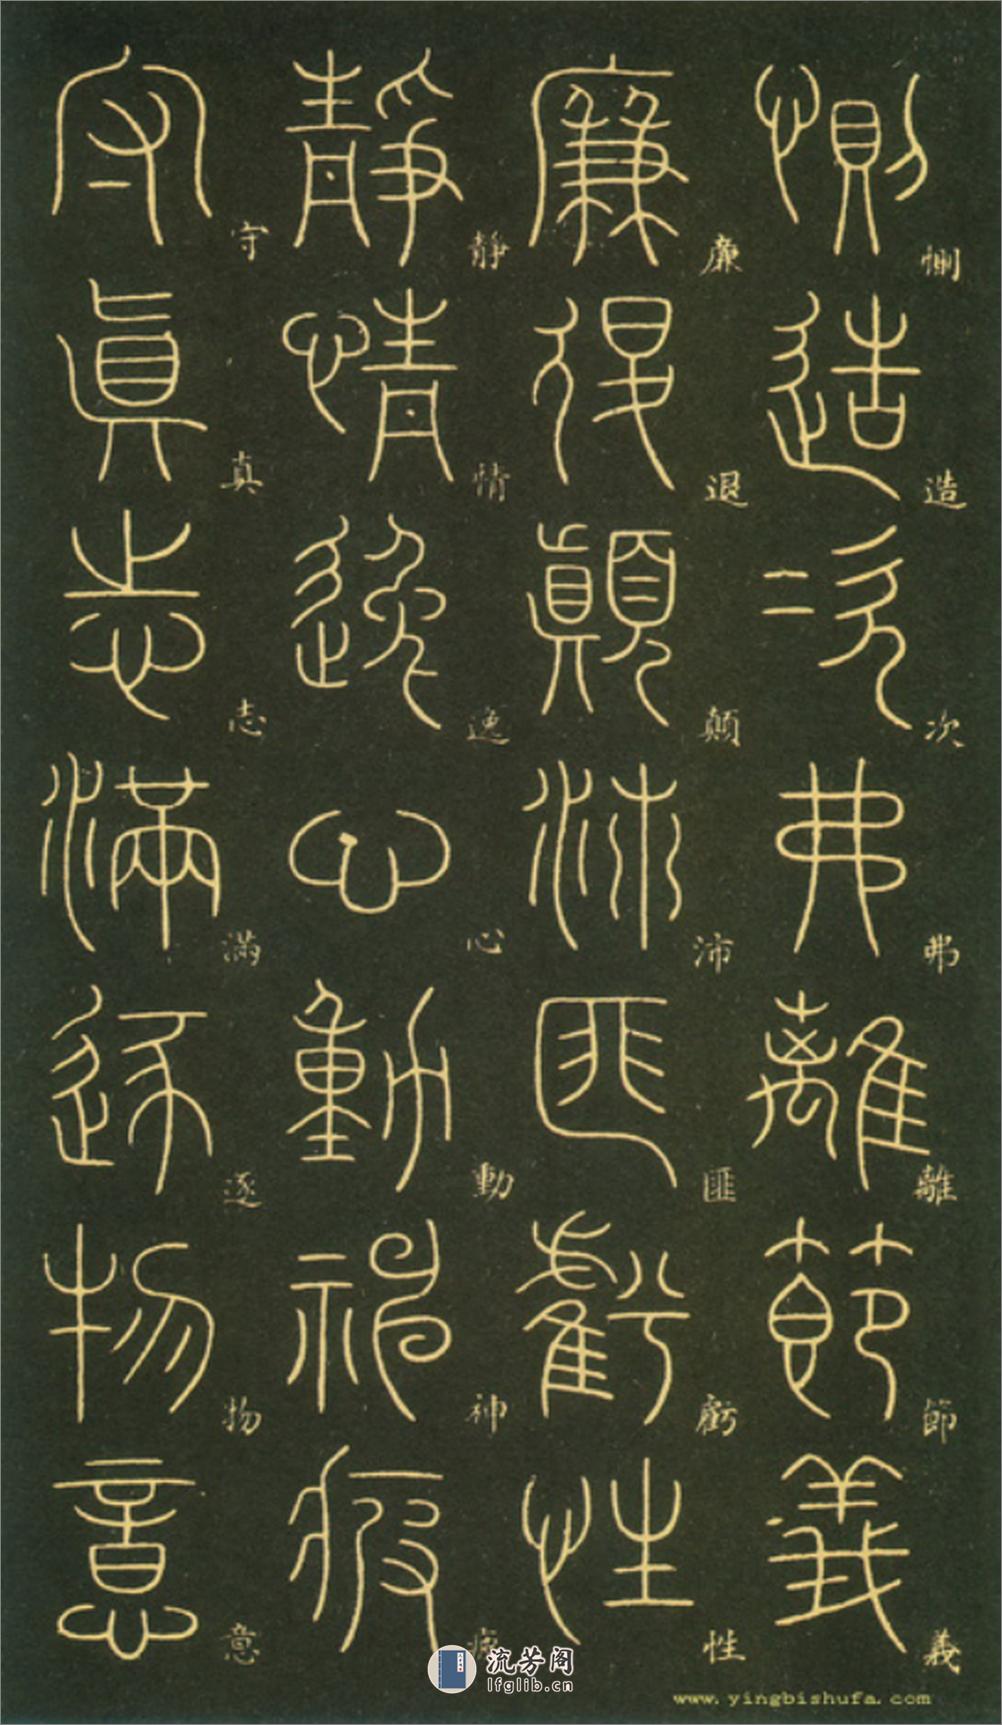 惻造次弗離節義
廉退顛沛匪虧性
靜情逸心動神疲
守真志滿逐物意
流芳阁
lfglib.cn
www.yingbishufa.com